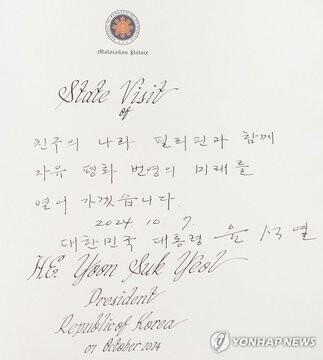 Malacañan Palace
State Visit
of
친구의 나라 필리핀과 함께
자유 평화 번영의 미래를
열어 가겠습니다.
2024. 10. 7.
대한민국 대통령 윤석열
H.E. Yoon Suk Yeol
President
Republic of Korea
07 October 2024
YONHAP NEWS